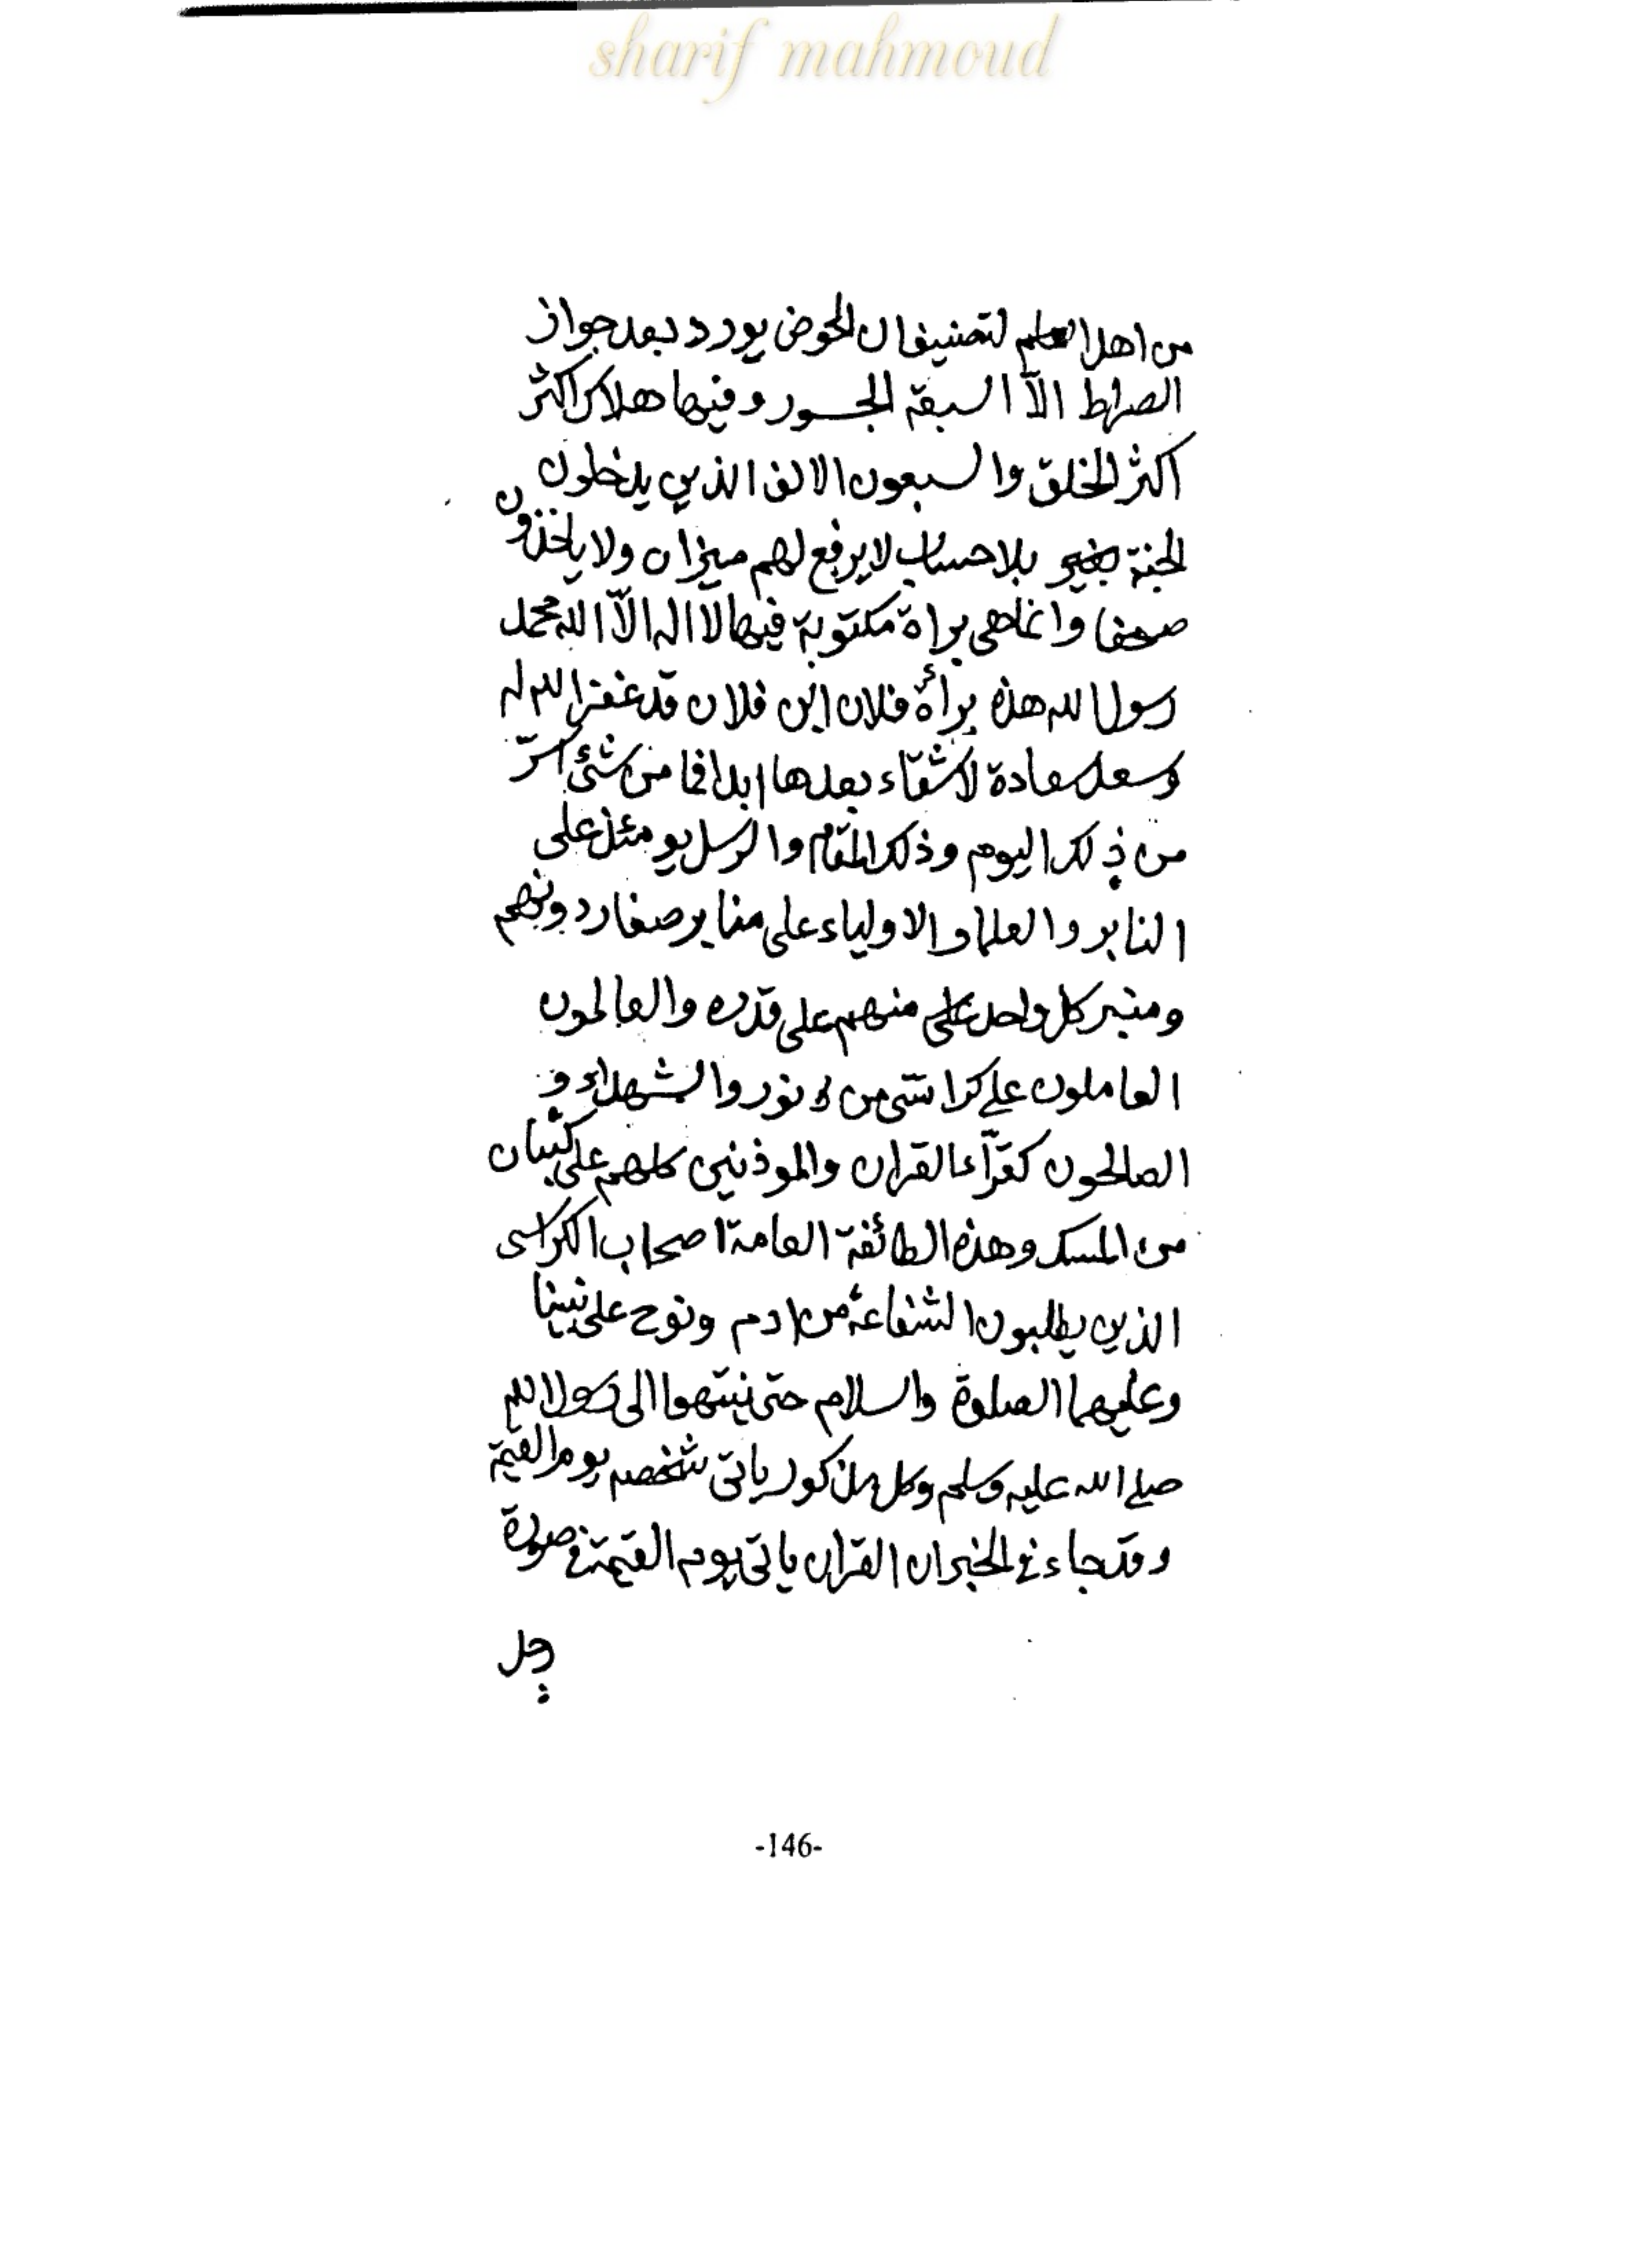 sharif mahmoud
من اهل العلم لتصنيفا ان الحوض يورد بعد جواز
الصراط الاّ السبقة الجسور وفيها هلاك اكثر
اكثر الخلق والسبعون الالف الذين يدخلون
الجنة بغير بلاحساب لايرفع لهم ميزان ولا ياخذون
صحفا وانماهى براة مكتوبة فيها لااله الاّ الله محمد
رسول الله هذه برأة فلان ابن فلان قد غفر الله له
وسعد سعادة لاشقاء بعدها ابدا فما من شئ اسرّ
من ذلك اليوم وذلك المقام والرسل يومئذ على
المنابر والعلما والاولياء على منابر صغار دونهم
ومنبر كل واحد على منهم على قدره والعالمون
العاملون على كراسى من نور والشهداء و
الصالحون كقرّاء القران والموذنين كلهم على كثبان
من المسك وهذه الطائفة العامة اصحاب الكراسى
الذين يطلبون الشفاعة من ادم ونوح على نبينا
وعليهما الصلوة والسلام حتى ينتهوا الى رسول الله
صلى الله عليه وسلم وكل مذكور ياتى شخصه يوم القيمة
وقد جاء فى الخبر ان القران ياتى يوم القيمة فى صورة
رجل
-146-